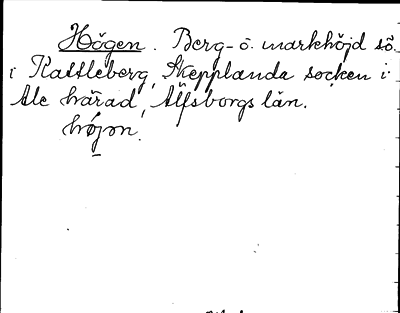 Högen. Berg- o. markhöjd sö.
i Kattleberg, Skepplanda socken i
Ale härad, Älfsborgs län.
hǫ́jǝn.